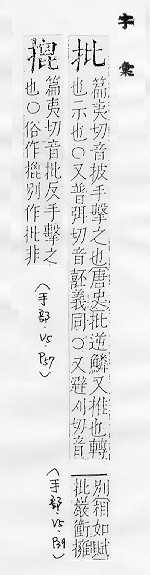 字彙
批
篇夷切音披手擊之也唐史批逆鱗又推也轉
也示也○又普弭切音諀義同○又避列切音
別相如賦
批巖衝擁
(手部·V5·P39)
篇夷切音批反手擊之
也○俗作別作批非
(手部·V5·P57)